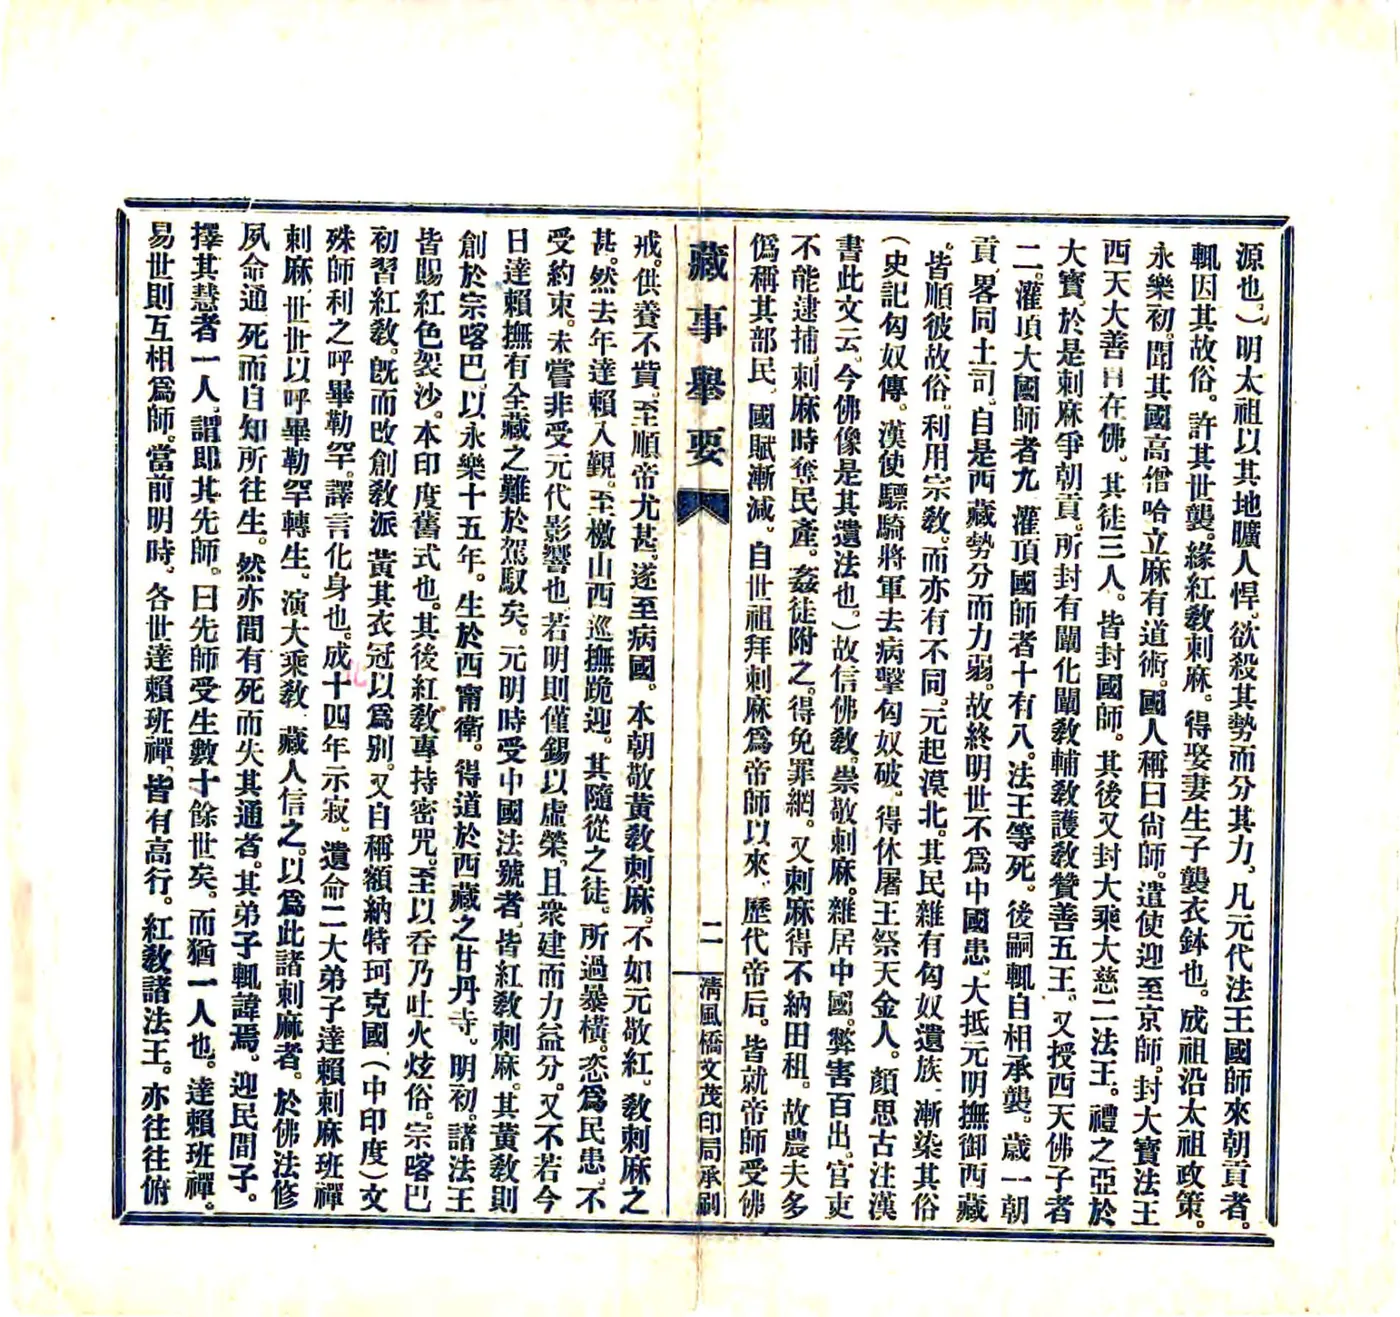 源也。）明太祖以其地曠人悍。欲殺其勢而分其力。凡元代法王國師來朝貢者。
輒因其故俗。許其世襲。緣紅教剌麻。得娶妻生子襲衣鉢也。成祖沿太祖政策。
永樂初。聞其國高僧哈立麻有道術。國人稱曰尙師。遣使迎至京師。封大寶法王
西天大善自在佛。其徒三人。皆封國師。其後又封大乘大慈二法王。禮之亞於
大寶。於是剌麻爭朝貢。所封有闡化闡教輔教護教贊善五王。又授西天佛子者
二。灌頂大國師者九。灌頂國師者十有八。法王等死。後嗣輒自相承襲。歲一朝
貢。畧同土司。自是西藏勢分而力弱。故終明世不爲中國患。大抵元明撫御西藏
。皆順彼故俗。利用宗教。而亦有不同。元起漠北。其民雜有匈奴遺族。漸染其俗
（史記匈奴傳。漢使驃騎將軍去病擊匈奴破。得休屠王祭天金人。顏思古注漢
書此文云。今佛像是其遺法也。）故信佛教。崇敬剌麻。雜居中國。弊害百出。官吏
不能逮捕。剌麻時奪民產。姦徒附之。得免罪網。又剌麻得不納田租。故農夫多
僞稱其部民。國賦漸減。自世祖拜剌麻爲帝師以來。歷代帝后。皆就帝師受佛
藏事舉要
二
淸風橋文茂印局承刷
戒。供養不貲。至順帝尤甚。遂至病國。本朝敬黃教剌麻。不如元敬紅。教剌麻之
甚。然去年達賴入覲。至檄山西巡撫跪迎。其隨從之徒。所過暴橫。恣爲民患。不
受約束。未嘗非受元代影響也。若明則僅錫以虛榮。且衆建而力益分。又不若今
日達賴撫有全藏之難於駕馭矣。元明時受中國法號者。皆紅教剌麻。其黃教則
創於宗喀巴。以永樂十五年。生於西甯衛。得道於西藏之甘丹寺。明初。諸法王
皆賜紅色袈沙。本印度舊式也。其後紅教專持密咒。至以呑乃吐火炫俗。宗喀巴
初習紅教。旣而改創教派　黃其衣冠以爲别。又自稱額納特珂克國。（中印度）文
殊師利之呼畢勒罕。譯言化身也。成十四年示寂。遺命二大弟子達賴剌麻班禪
剌麻。世世以呼畢勒罕轉生。演大乘教　藏人信之。以爲此諸剌麻者。於佛法修
夙命通　死而自知所往生。然亦間有死而失其通者。其弟子輒諱焉。迎民間子。
擇其慧者一人。謂即其先師。曰先師受生數十餘世矣。而猶一人也。達賴班禪。
易世則互相爲師。當前明時。各世達賴班禪。皆有高行。紅教諸法王。亦往往俯